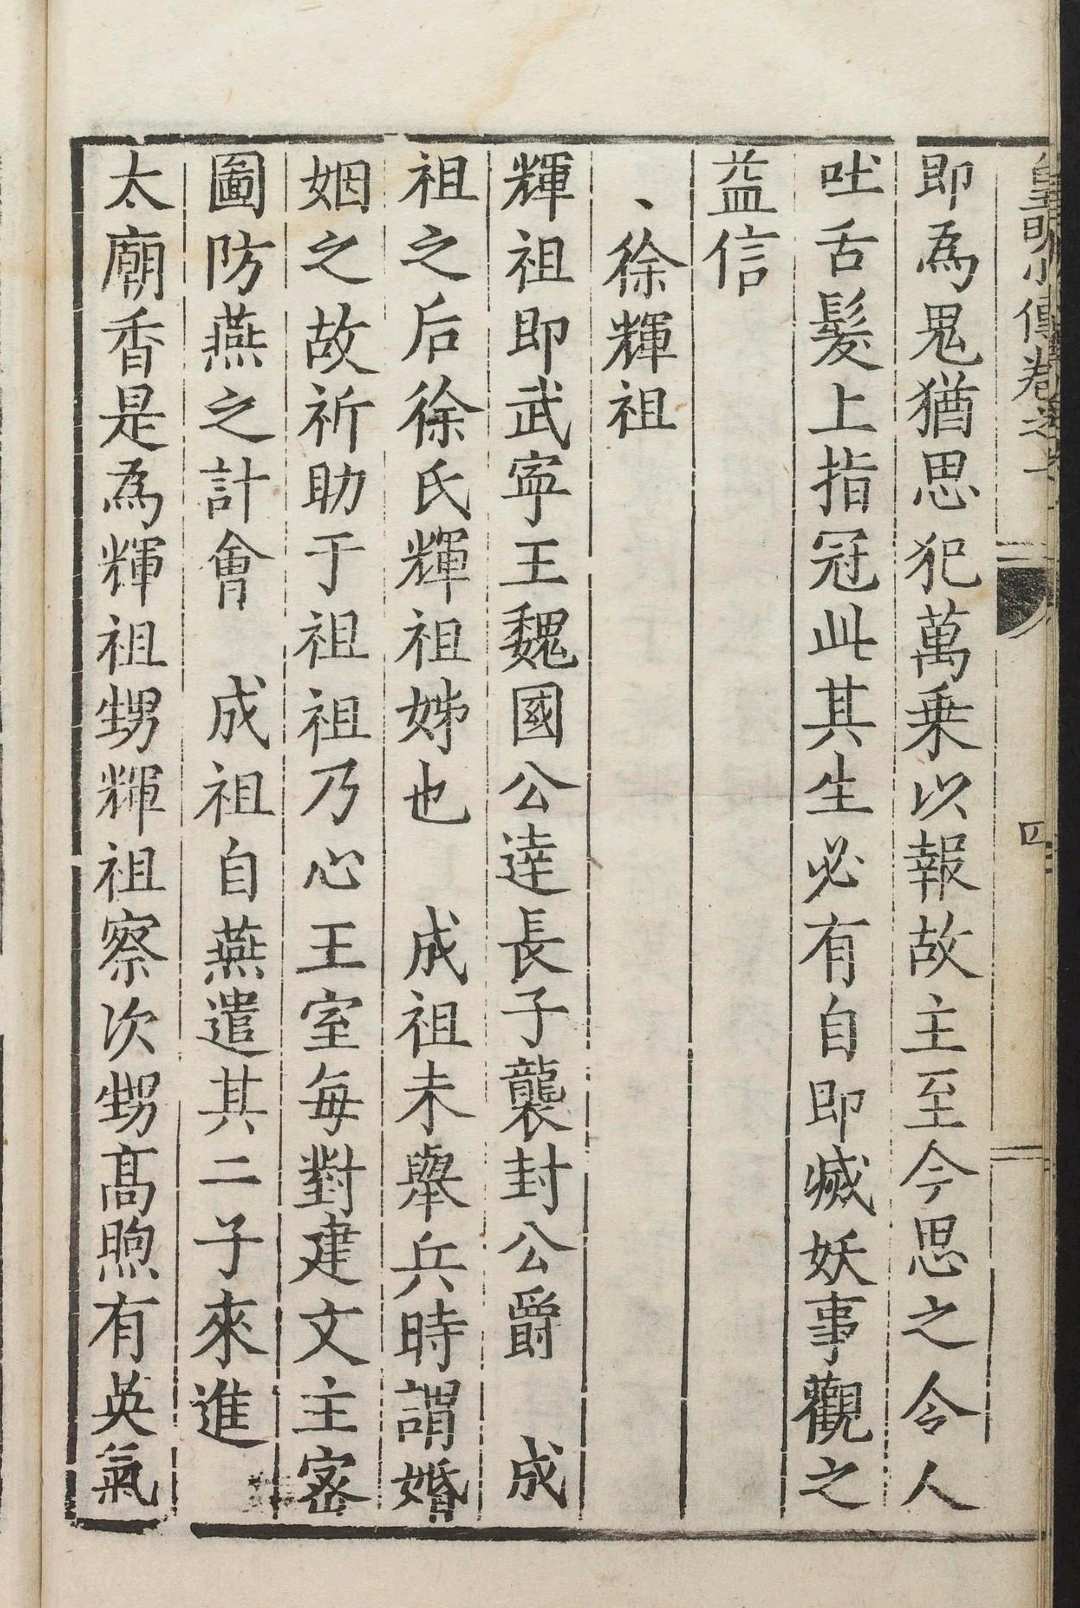 皇明小傳卷之
四
即為鬼猶思犯萬乗以報故主至今思之令人
吐舌髮上指冠此其生必有自即臧妖事觀之
益信
、徐輝祖
輝祖即武寧王魏國公達長子襲封公爵　成
祖之后徐氏輝祖姊也　成祖未舉兵時謂婚
姻之故祈助于祖祖乃心王室每對建文主密
圖防燕之計會　成祖自燕遣其二子來進
太廟香是為輝祖甥輝祖察次甥髙煦有英氣